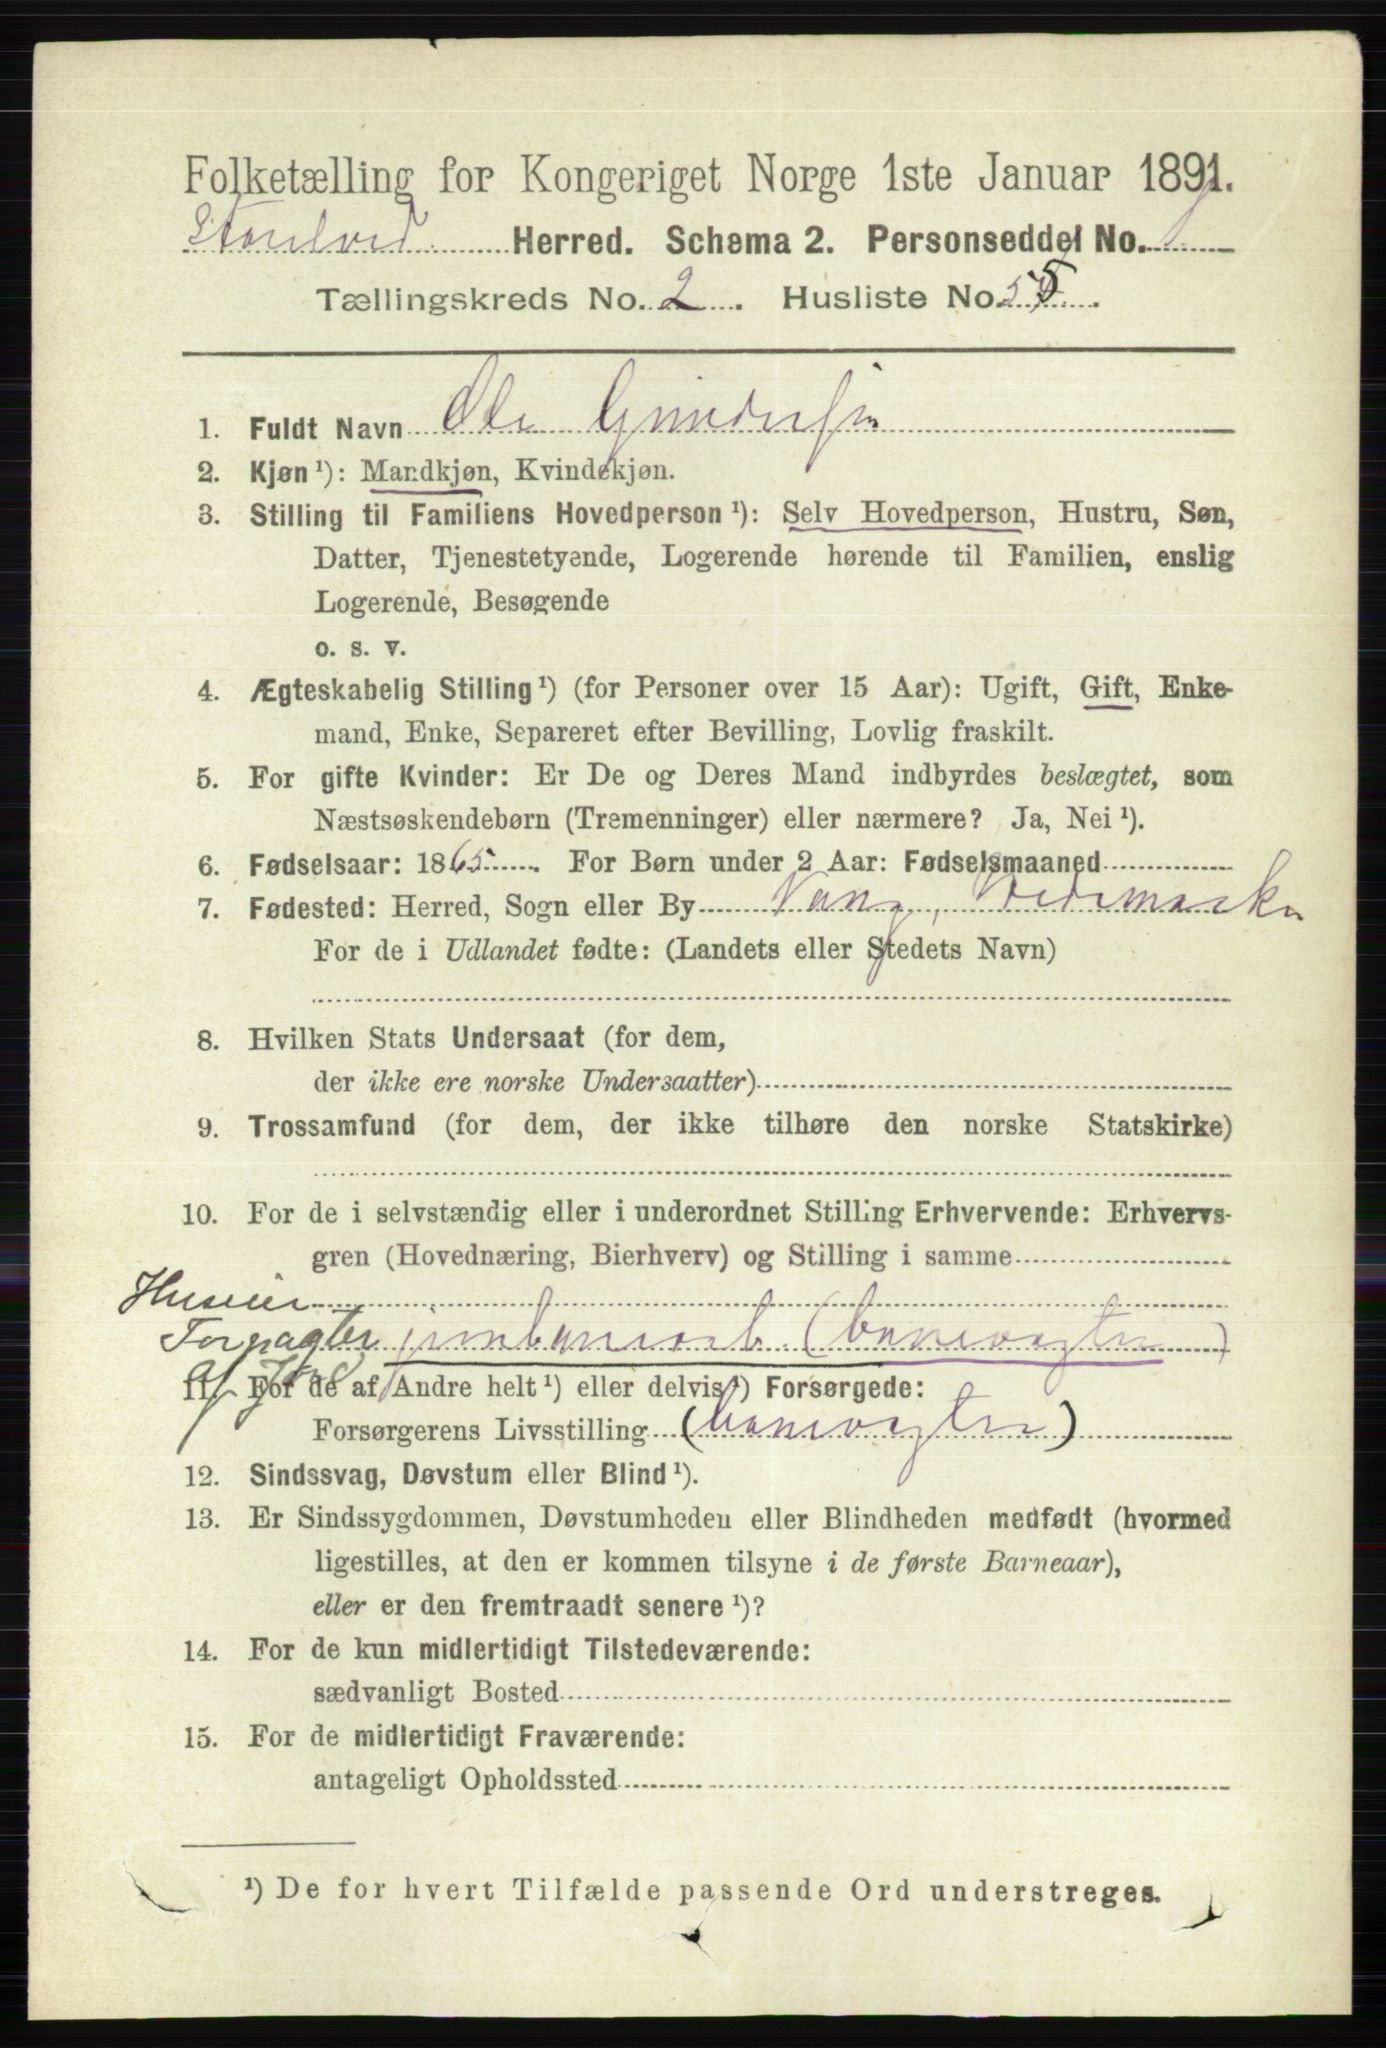 Folketælling for Kongeriget Norge 1ste Januar 1891.
Herred. Schema 2. Personseddel No. 1
Tællingskreds No. 2. Husliste No. 55.
1. Fuldt Navn Ole Gundersen
2. Kjøn ¹): Mandkjøn, Kvindekjøn.
3. Stilling til Familiens Hovedperson ¹): Selv Hovedperson, Hustru, Søn,
Datter, Tjenestetyende, Logerende hørende til Familien, enslig
Logerende, Besøgende
o. s. v.
4. Ægteskabelig Stilling ¹) (for Personer over 15 Aar): Ugift, Gift, Enke-
mand, Enke, Separeret efter Bevilling, Lovlig fraskilt.
5. For gifte Kvinder: Er De og Deres Mand indbyrdes beslægtet, som
Næstsøskendebørn (Tremenninger) eller nærmere? Ja, Nei ¹).
6. Fødselsaar: 1865. For Børn under 2 Aar: Fødselsmaaned
7. Fødested: Herred, Sogn eller By Vang, Hedemarken
For de i Udlandet fødte: (Landets eller Stedets Navn)
8. Hvilken Stats Undersaat (for dem,
der ikke ere norske Undersaatter)
9. Trossamfund (for dem, der ikke tilhøre den norske Statskirke)
10. For de i selvstændig eller i underordnet Stilling Erhvervende: Erhvervs-
gren (Hovednæring, Bierhverv) og Stilling i samme
Huseier
Forpagter jernbanearb. (banevogter)
af Jord
11. For de af Andre helt ¹) eller delvis ¹) Forsørgede:
Forsørgerens Livsstilling (banevogter)
12. Sindssvag, Døvstum eller Blind ¹).
13. Er Sindssygdommen, Døvstumheden eller Blindheden medfødt (hvormed
ligestilles, at den er kommen tilsyne i de første Barneaar),
eller er den fremtraadt senere ¹)?
14. For de kun midlertidigt Tilstedeværende:
sædvanligt Bosted
15. For de midlertidigt Fraværende:
antageligt Opholdssted
¹) De for hvert Tilfælde passende Ord understreges.